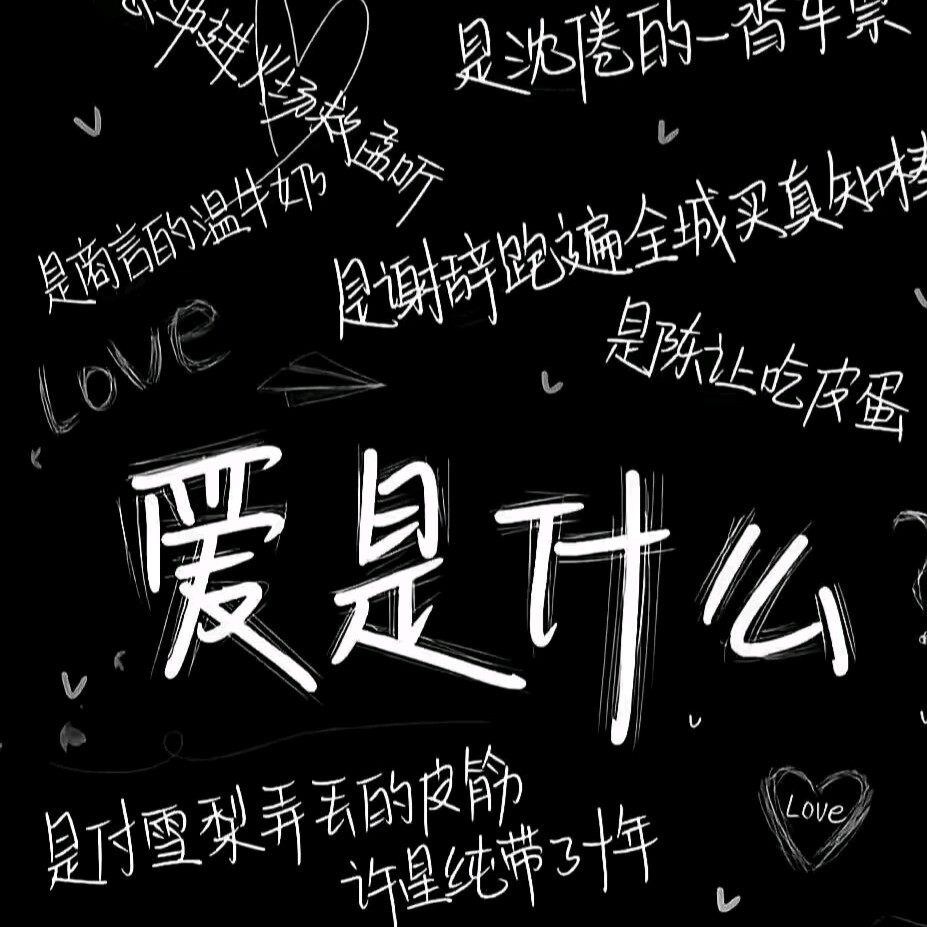 是沈倦的一沓车票
进火场救孟听
是商言的温牛奶
是谢辞跑遍全城买真知棒
是陈让吃皮蛋
LOVe
爱是什么
是付雪梨弄丢的皮筋
许星纯带了十年
Love